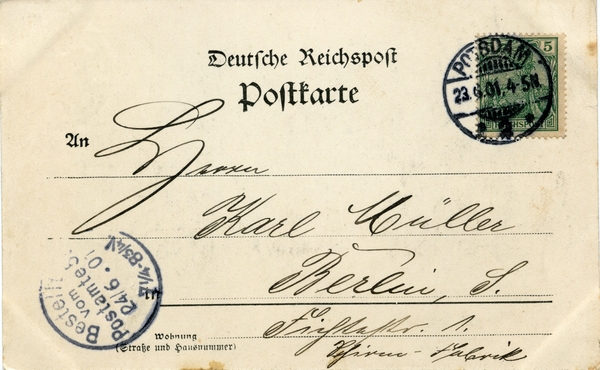 Deutsche Reichspost
Postkarte
5
POTSDAM
23.6.01.4-5N.
An
Herrn
Karl Müller
in
Berlin, S.
Wohnung
(Straße und Hausnummer)
Fichtestr. 1.
Schirm-Fabrik
Bestellt
vom
Postamte
24.6.01